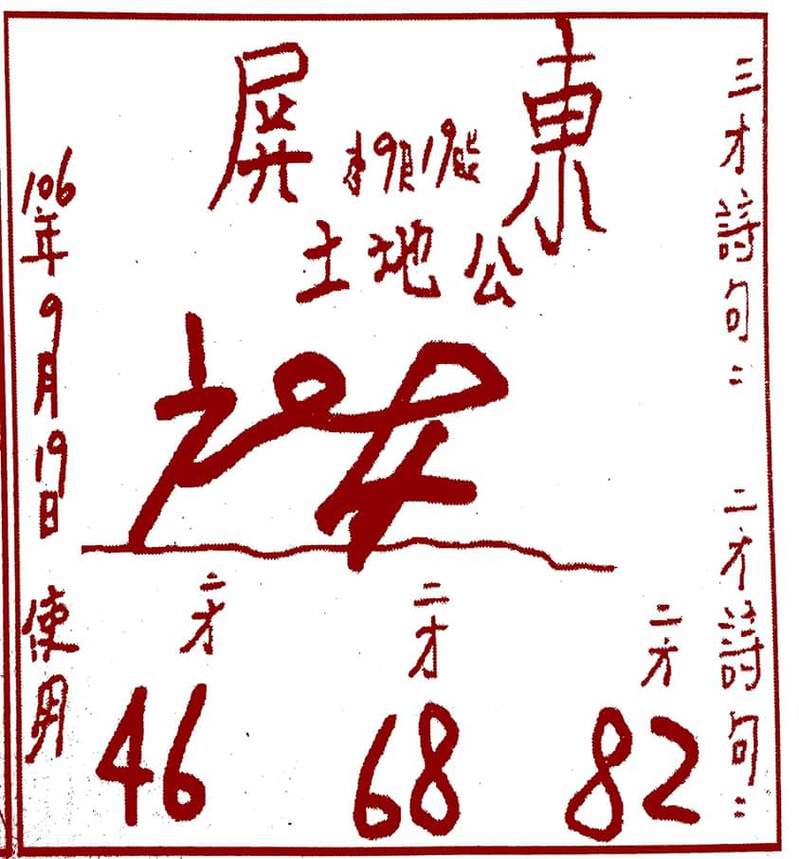 三才詩句：
二才詩句：
屏東
9月19
土地公
106年9月19日使用
二才
二才
二才
46
68
82